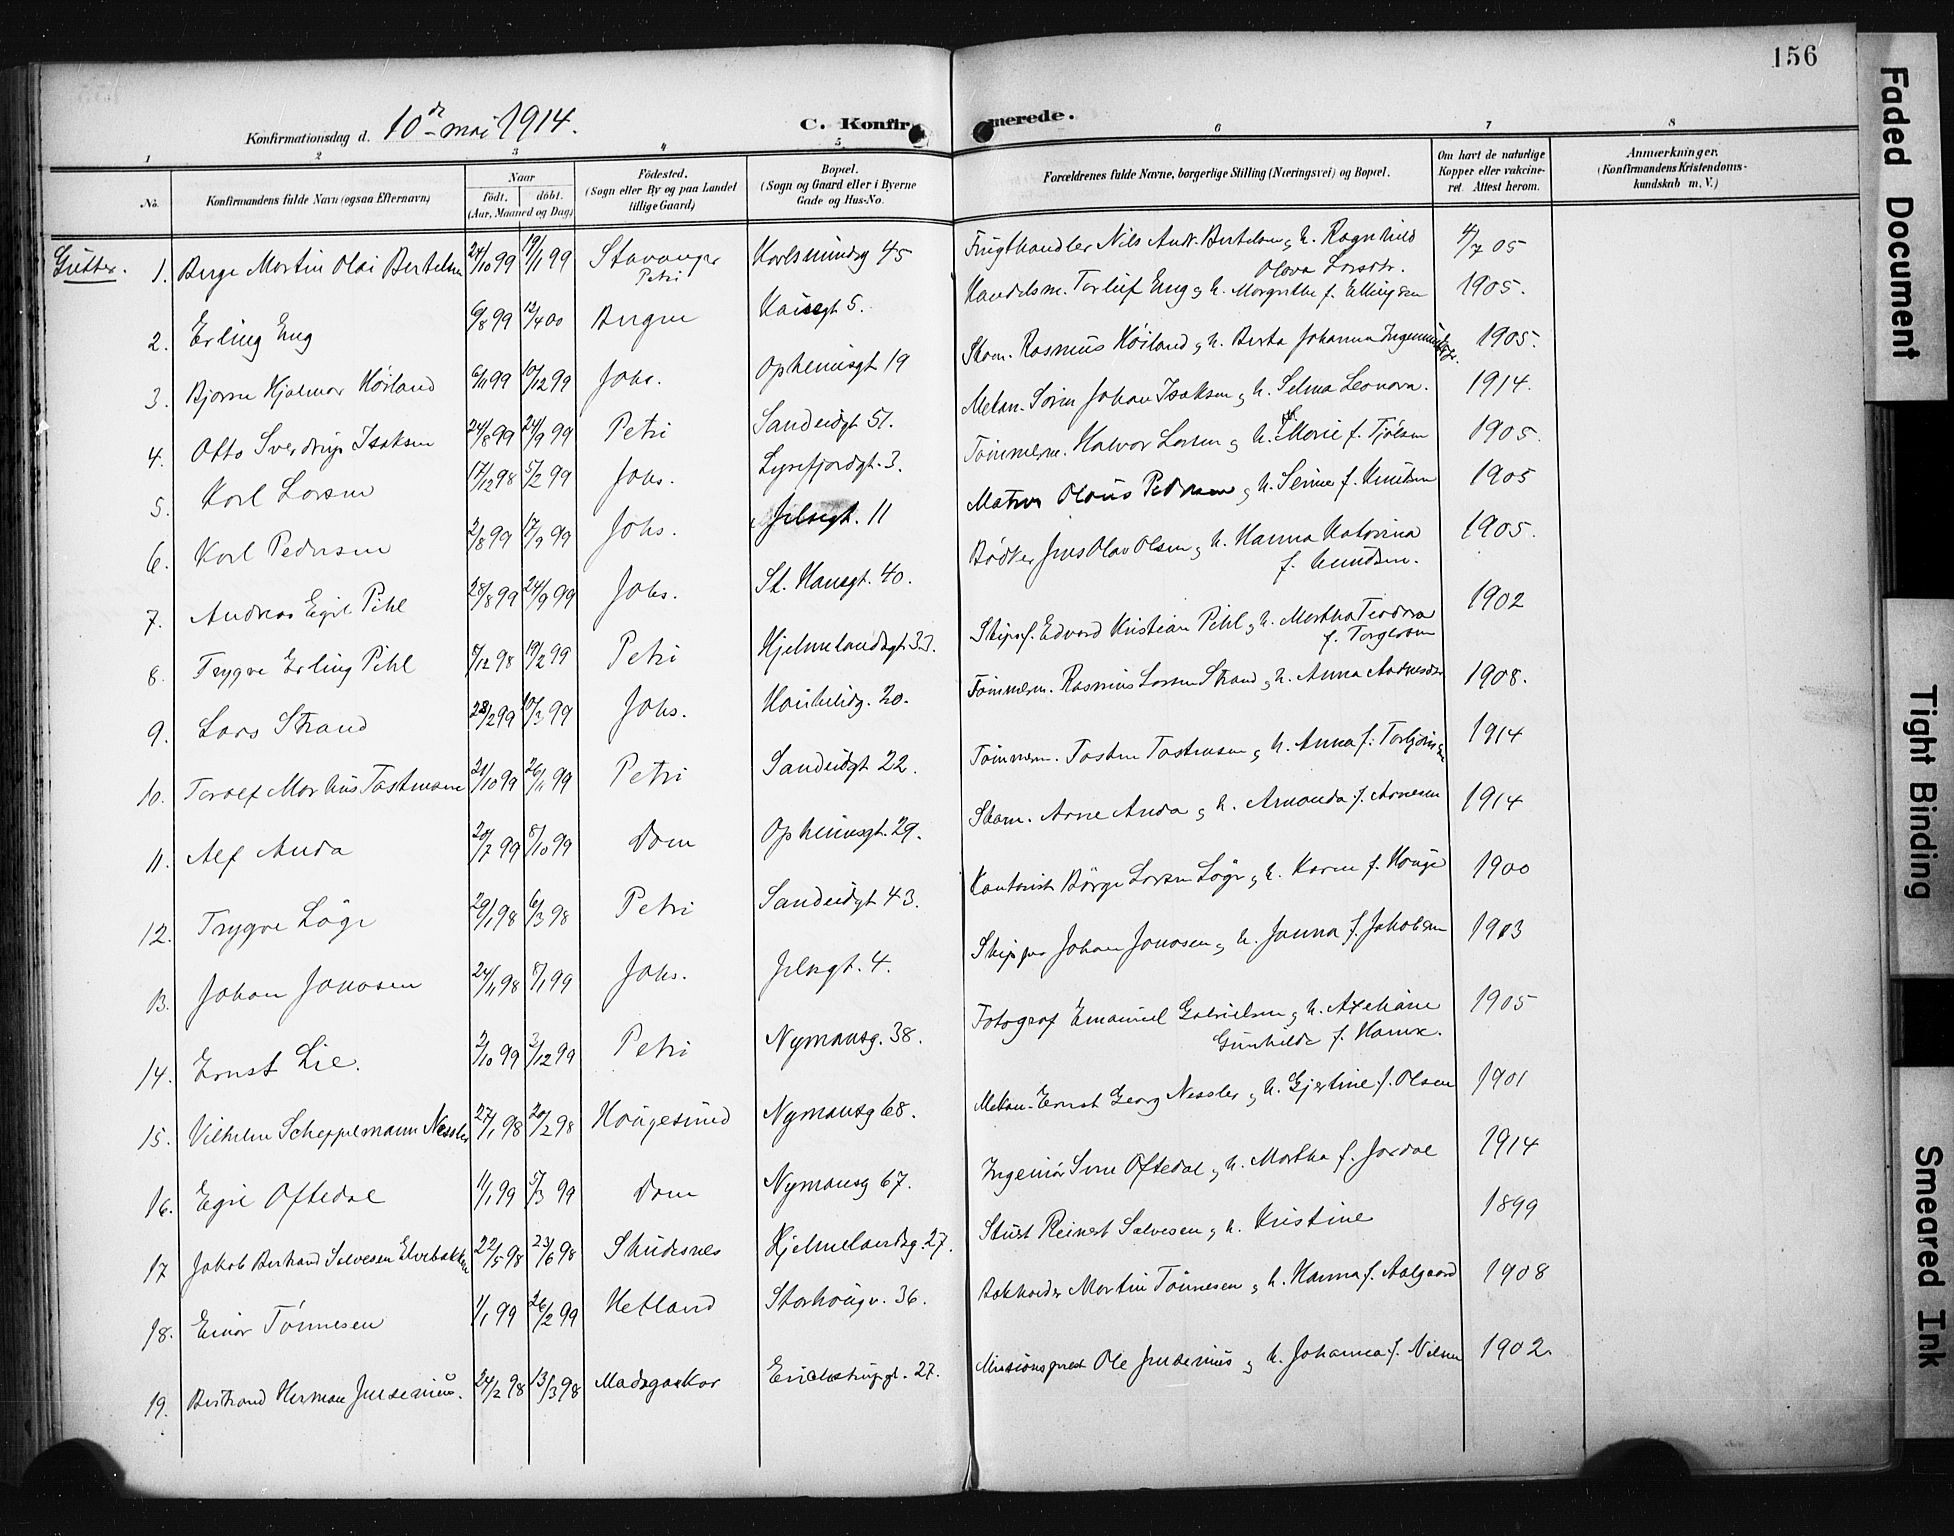 156
Konfirmationsdag d. 10de mai 1914.
C. Konfirmerede.
1 2 3 4 5 6 7 8
No.
Konfirmandens fulde Navn (ogsaa Efternavn)
Naar
født. døbt.
(Aar, Maaned og Dag)
Fødested.
(Sogn eller By og paa Landet
tillige Gaard)
Bopæl.
(Sogn og Gaard eller i Byerne
Gade og Hus-No.
Forældrenes fulde Navne, borgerlige Stilling (Næringsvei) og Bopæl.
Om havt de naturlige
Kopper eller vakcine-
ret. Attest herom.
Anmærkninger.
(Konfirmandens Kristendoms-
kundskab m. V.)
Gutter. 1. Børge Martin Olai Bertelsen 24/10 99 19/11 99 Stavanger Petri Karlsmindeg 45 Frugthandler Nils Andr. Bertelsen og h. Ragnhild Olava Larsdtr. 4/7 05
2. Erling Eng 6/8 99 12/4 00 Bergen Kaisegt 5. Handelsm. Torleif Eng og h. Margrethe f. Ellingsen 1905.
3. Bjarne Hjalmar Høiland 6/11 99 10/12 99 Johs. Opheimsgt 19 Skom. Rasmus Høiland og h. Berta Johanna 1905.
4. Otto Sverdrup Isaksen 24/8 99 24/9 99 Petri Sandeidgt 51. Mekan. Søren Johan Isaksen og h. Selma Leonora. 1914.
5. Karl Larsen 17/12 98 5/2 99 Johs. Lysefjordgt. 3. Tømmerm. Halvor Larsen og h. Marie f. Tjølsen 1905.
6. Karl Pedersen 2/8 99 17/9 99 Johs. Jelsegt. 11 Matros Olaus Pedersen og h. Serine f. Knudsen 1905
7. Andreas Egil Pihl 28/8 99 24/9 99 Johs. St. Hansgt. 40. Bødker Jens Olav Olsen og h. Hanna Katarina f. Knudsen. 1905.
8. Trygve Erling Pihl 5/12 98 19/2 99 Petri Hjelmelandsgt. 33. Skipsf. Edvard Kristian Pihl og h. Martha Teodora f. Torgersen 1902
9. Lars Strand 28/2 99 10/3 99 Johs. Haukelidg. 20. Tømmerm. Rasmus Larsen Strand og h. Anna 1908.
10. Toralf Markus Tastensen 21/10 99 26/11 99 Petri Sandeidgt 22. Tømmerm. Tosten Tostensen og h. Anna f. 1914
11. Alf Anda 20/7 99 8/10 99 Dom Opheimsgt. 29. Skom. Arne Anda og h. Amanda f. Arnesen 1914
12. Trygve Løge 29/1 98 6/3 98 Petri Sandeidgt 43. Kontorist Børge Larsen Løge og h. Karen f. Hauge 1900
13. Johan Jonasen 24/11 98 8/1 99 Johs. Jelsegt. 4. Skipper Johan Jonasen og h. Janna f. Jakobsen 1903
14. Ernst Lie. 2/10 99 3/12 99 Petri Nymansg. 38. Fotograf Emanuel Gabrielsen og h. Axeliane Gunhilde f. 1905
15. Vilhelm Scheppelmann Nessler 27/1 98 20/2 98 Haugesund Nymansg 68. Mekan. Ernst Georg Nessler og h. Gjertine f. Olsen 1901
16. Egil Oftedal 11/1 99 5/3 99 Dom Nymansg 67. Ingeniør Sven Oftedal og h. Martha f. Jordal 1914
17 Jakob Bertrand Salvesen Elvebakken 22/5 98 23/6 98 Skudesnes Hjelmelandsg. 27. Stuert Reinert Salvesen og h. Kristine 1899
18. Einar Tønnesen 1/1 99 26/2 99 Hetland Storhaugv. 36. Bokholder Martin Tønnesen og h. Hanna f. Aalgaard 1908
19. Bertrand Herman Jusenius. 24/2 98 13/3 98 Madagaskar Erichstrupgt. 27. Missionsprest Ole Jusenius og h. Johanna f. Nilsen 1902.
Faded Document
Tight Binding
Smeared Ink